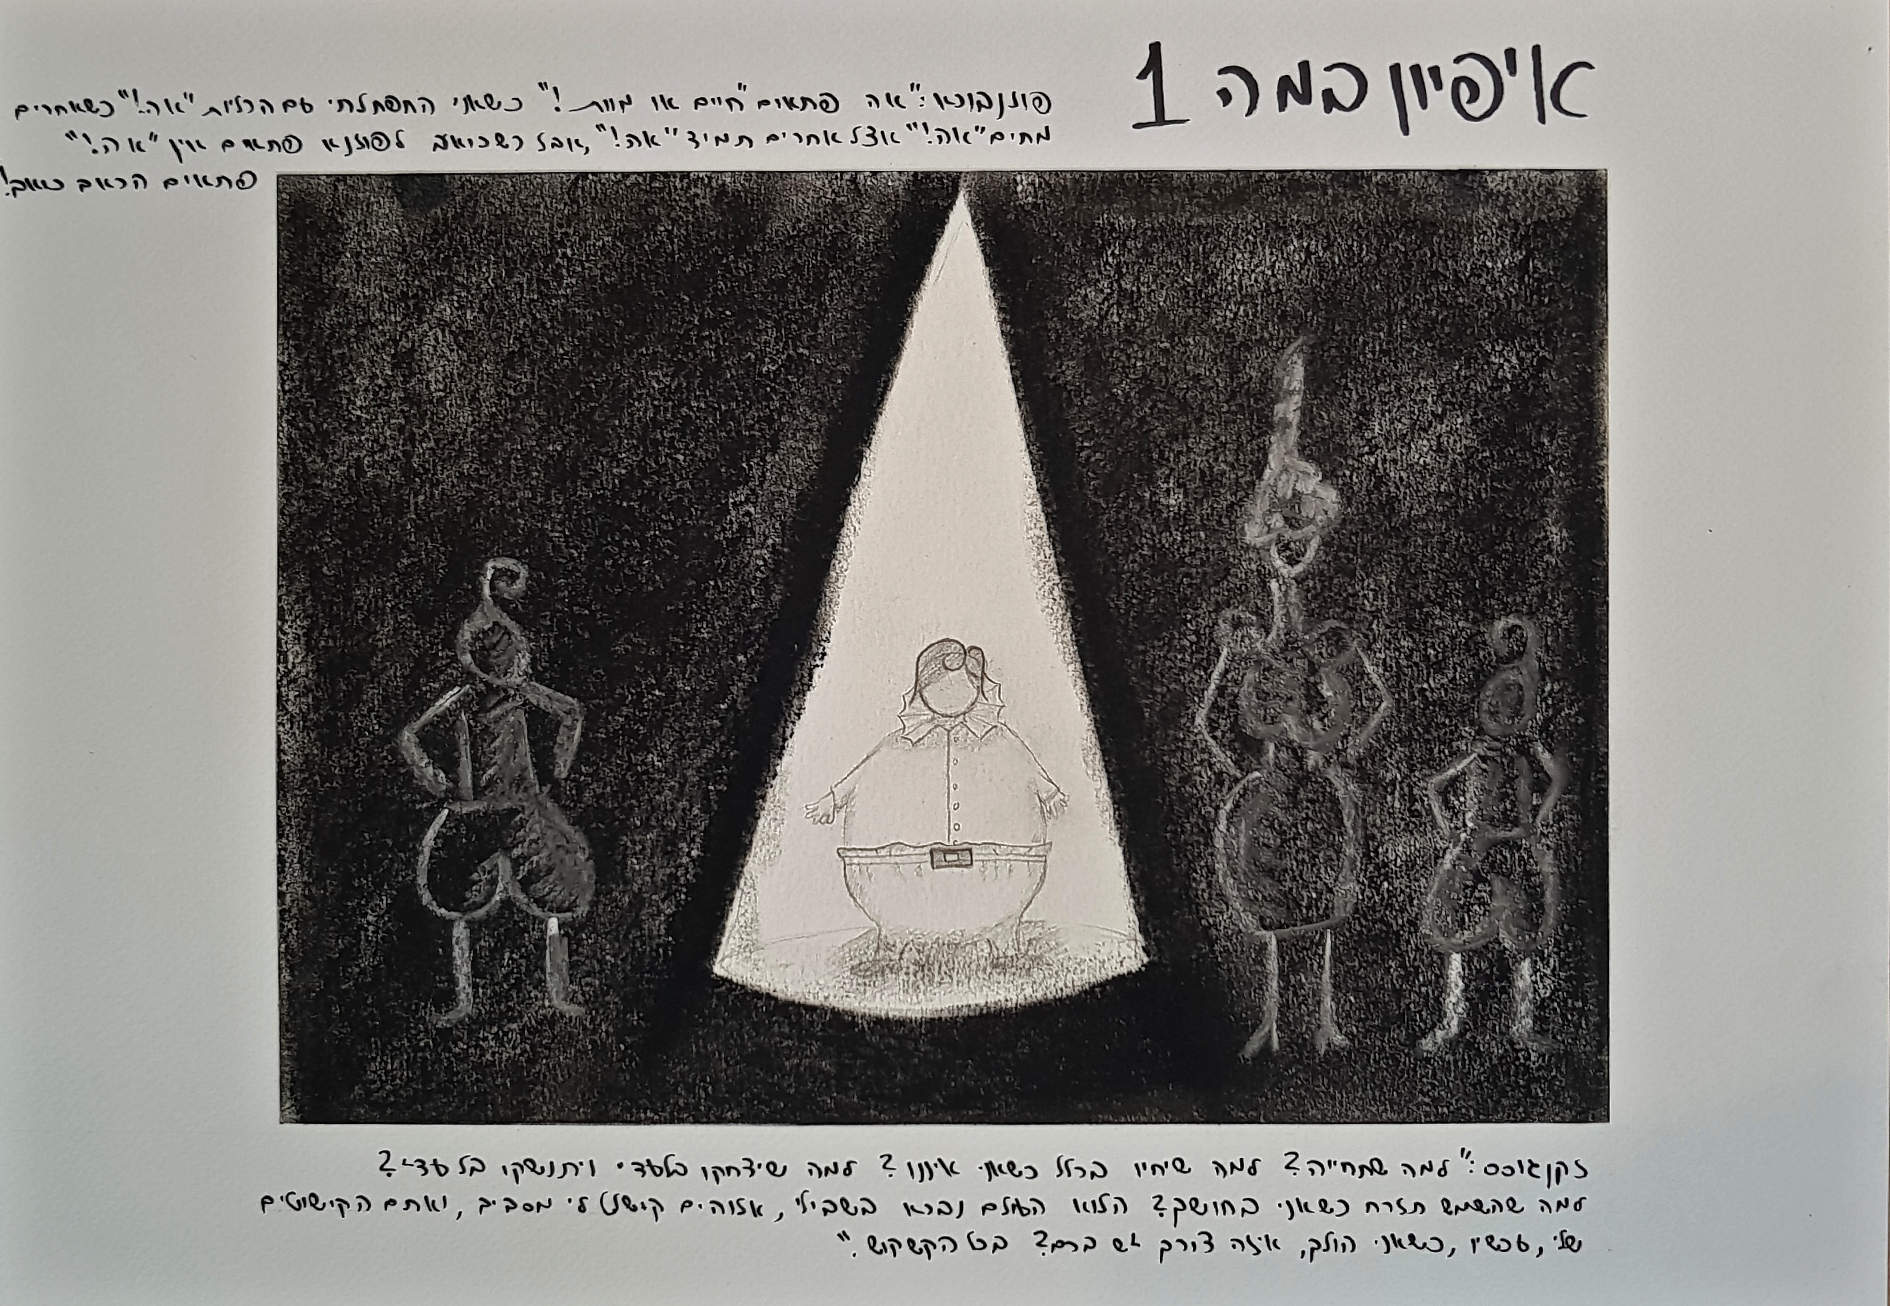 איפיון במה 1
פוזנבוכא: "אה פתאום "חיים או מוות!" כשאני התפתלתי עם הכליות "אה!" כשאחרים
מתים "אה!" אצל אחרים תמיד "אה!", אבל כשכואב לפוזנא פתאום אין "אה!"
פתאום הכאב כואב!
זקנגוכס: "למה שתחייה? למה שיחיו בכלל כשאני אינני? למה שיצחקו בלעדי ויתנשקו בלעדי?
למה שהשמש תזרח כשאני בחושך? הלוא העולם נברא בשבילי, אלוהים קישט לי מסביב, ואתם הקישוטים
שלי, עכשיו, כשאני הולך, איזה צורך יש בכם? בכל הקשקוש."